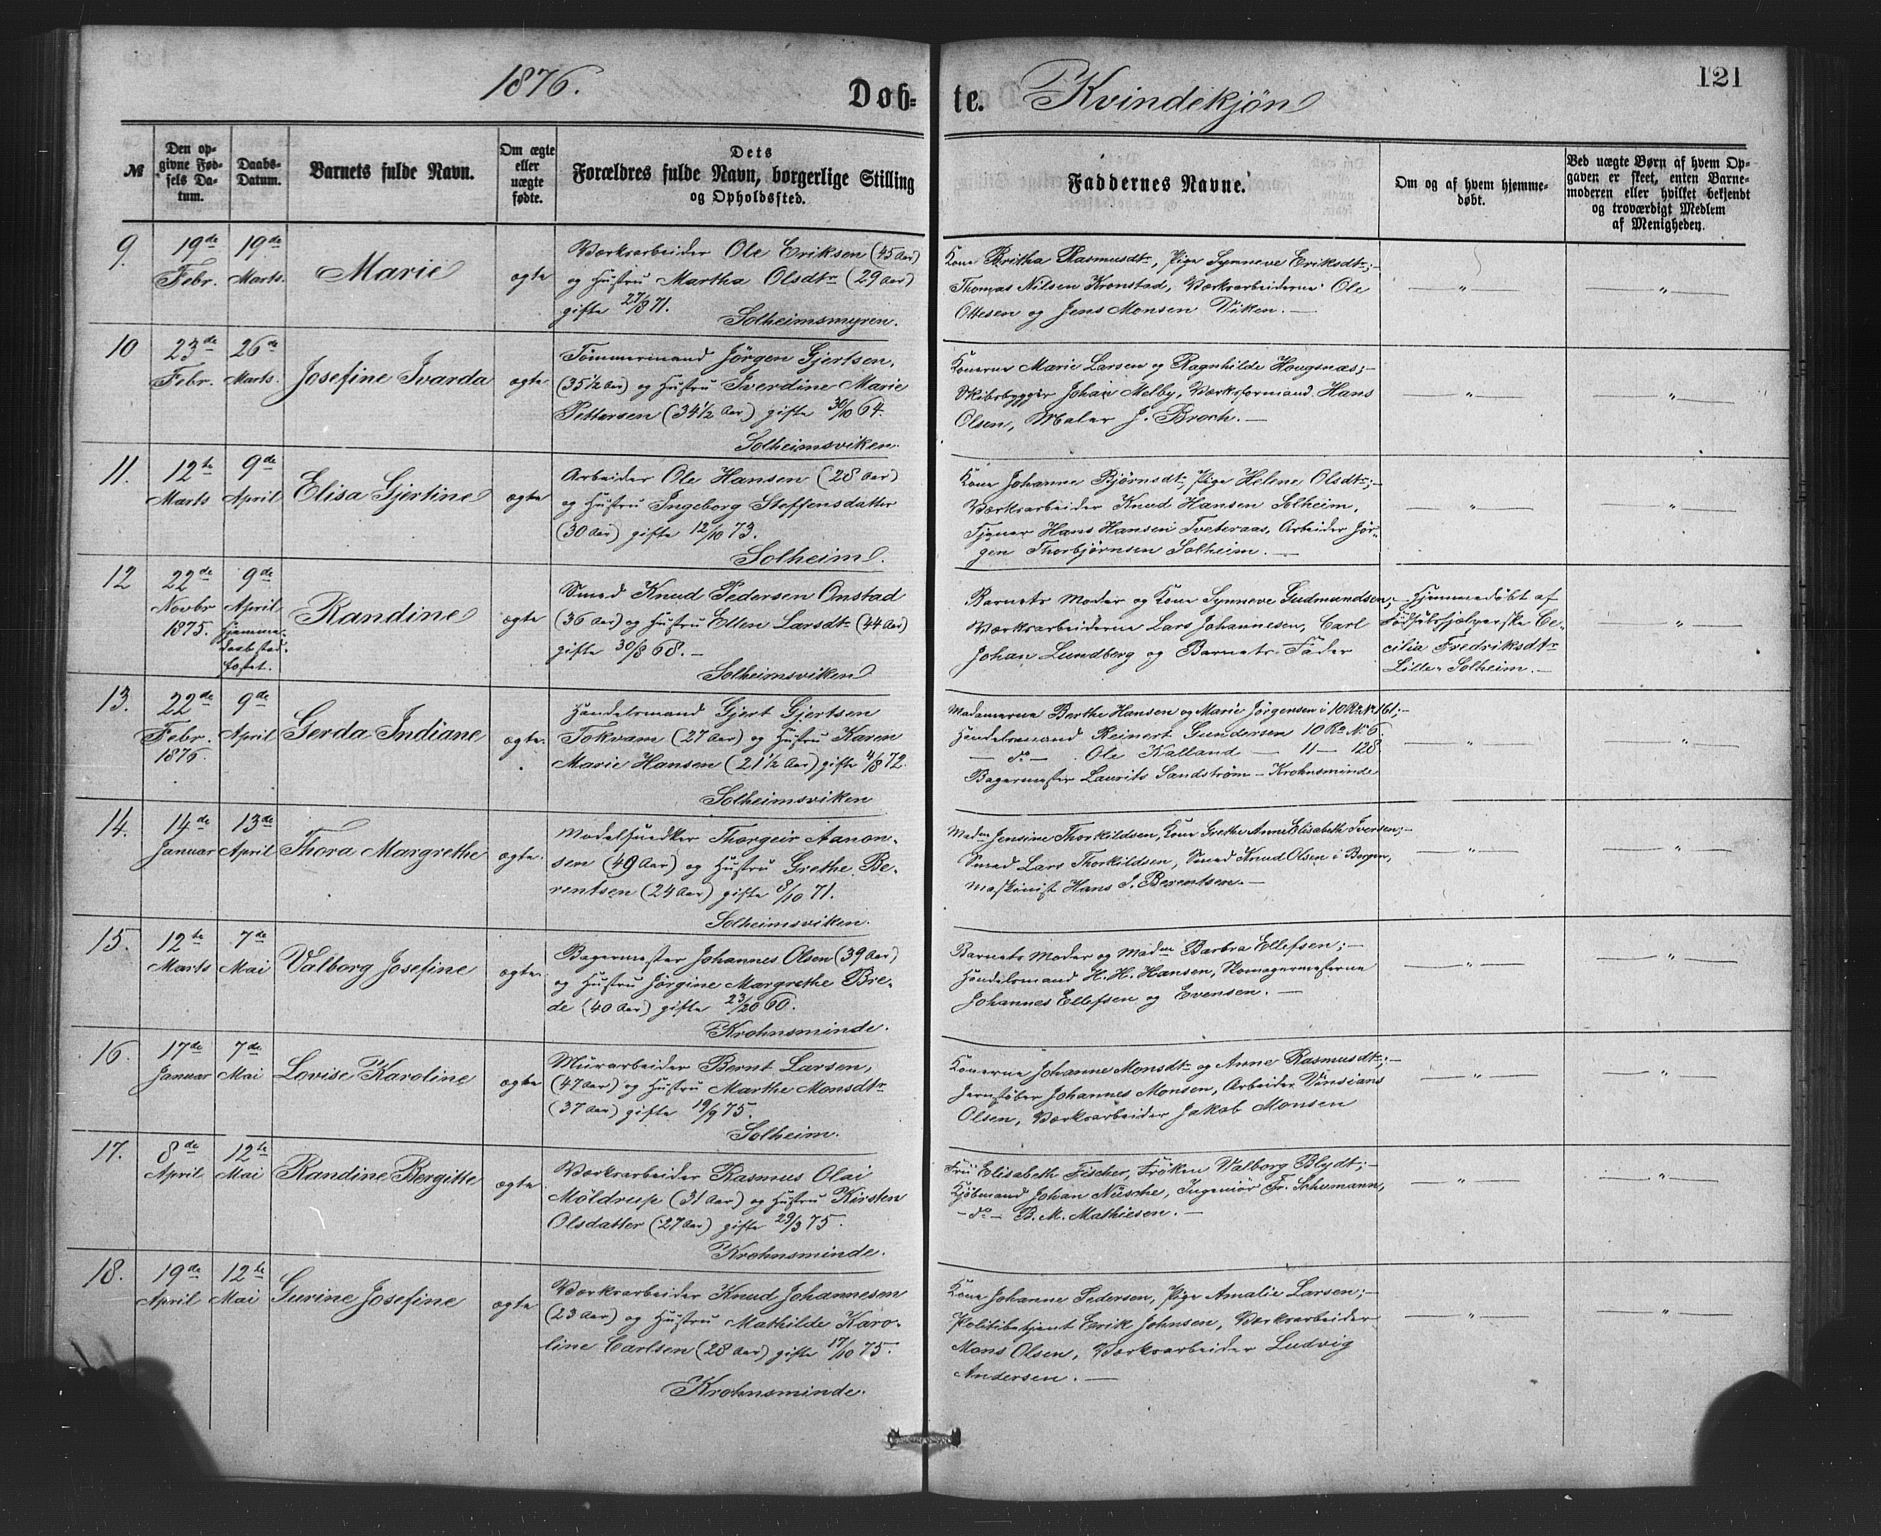 1876. Døb-
te. Kvindekjøn
121
№
Den op-
givne Fød-
sels Da-
tum.
Daabs-
Datum.
Barnets fulde Navn.
Om ægte
eller
uægte
fødte.
Dets
Forældres fulde Navn, borgerlige Stilling
og Opholdssted.
Faddernes Navne.
Om og af hvem hjemme-
døbt.
Ved uægte Børn af hvem Op-
gaven er skeet, enten Barne-
moderen eller hvilket bekjendt
og troværdigt Medlem
af Menigheden.
9.
19de
Febr.
19de
Marts.
Marie
ægte
Værksarbeider Ole Eriksen (45 Aar)
og Hustru Martha Olsdtr (29 Aar)
gifte 27/8 71.
Solheimsmyren.
Kone Britha Rasmusdtr, Pige Synneve Eriksdtr;-
Thomas Nilsen Kronstad, Værksarbeiderne Ole
Ottesen og Jens Monsen Viken. —
— " —
— " —
10
23de
Febr.
26de
Marts.
Josefine Ivarda
ægte
Tømmermand Jørgen Gjertsen,
(35 1/2 Aar) og Hustru Iverdine Marie
Pettersen (34 1/2 Aar) gifte 30/10 64.
Solheimsviken.
Konerne Marie Larsen og Ragnhilde Hougsnæs;-
Skibsbygger Johan Melby, Værksformand Hans
Olsen, Maler J. Broch. —
— " —
— " —
11.
12te
Marts
9de
April
Elisa Gjertine
ægte
Arbeider Ole Hansen (28 Aar)
og Hustru Ingeborg Steffensdatter
(30 Aar) gifte 12/10 73.
Solheim.
Kone Johanne Bjørnsdtr, Pige Helene Olsdtr;-
Værksarbeider Knud Hansen Solheim,
Tjener Hans Hansen Tveteraas, Arbeider Jør-
gen Thorbjørnsen Solheim. —
— " —
— " —
12
22de
Novbr
1875.
9de
April
Hjemme-
daabstad-
fæstet.
Randine
ægte
Smed Knud Pedersen Onstad
(36 Aar) og Hustru Ellen Larsdtr (44 Aar)
gifte 30/8 68. —
Solheimsviken
Barnets Moder og Kone Synneve Gudmundsen;-
Værksarbeiderne Lars Johannesen, Carl
Johan Lundberg og Barnets Fader
Hjemmedøbt af
Fødselshjælperske Ce-
cilia Fredriksdtr
Lille-Solheim. —
— " —
13.
22de
Febr.
1876.
9de
April
Gerda Indiane
ægte.
Handelsmand Gjert Gjertsen
Tokvam (27 Aar) og Hustru Karen
Marie Hansen (21 1/2 Aar) gifte 4/8 72.
Solheimsviken
Madamerne Berthe Hansen og Marie Jørgensen i 10 Rd № 161;-
Handelsmand Reinert Gundersen 10 Rd № 6.
— do — Ole Kalland — 11 — 128
Bagermester Laurits Sandstrøm - Krohnsminde
— " —
— " —
14.
14de
Januar
13de
April
Thora Margrethe
ægte.
Modelsnedker Thorgeir Aanon-
sen (40 Aar) og Hustru Grethe Be-
rentsen (24 Aar) gifte 8/10 71.
Solheimsviken.
Madm Jensine Thorkildsen, Kone Grethe Anne Elisabeth Iversen;-
Smed Lars Thorkildsen, Smed Knud Olsen i Bergen,
Maskinist Hans J. Berentsen. —
— " —
— " —
15.
12te
Marts
7de
Mai
Valborg Josefine
ægte
Bagermester Johannes Olsen (39 Aar)
og Hustru Jørgine Margrethe Bre-
de (40 Aar) gifte 23/20 60.
Krohnsminde.
Barnets Moder og Madm Barbra Ellefsen;-
Handelsmand H. H. Hansen, Skomagermesterne
Johannes Ellefsen og Evensen. —
— " —
— " —
16.
17de
Januar
7de
Mai
Lovise Karoline
ægte
Murarbeider Bernt Larsen,
(47 Aar) og Hustru Marthe Monsdtr
(37 Aar) gifte 19/9 75.
Solheim.
Konerne Johanne Monsdtr og Anne Rasmusdtr;-
Jernstøber Johannes Monsen, Arbeider Vinsians
Olsen, Værksarbeider Jakob Monsen
— " —
— " —
17.
8de
April
12te
Mai
Randine Bergitte
ægte
Værksarbeider Rasmus Olai
Møldrup (31 Aar) og Hustru Kirsten
Olsdatter (27 Aar) gifte 29/3 75.
Krohnsminde.
Fru Elisabeth Fischer, Frøken Valborg Blydt;-
Kjøbmand Johan Nüsche, Ingeniør Fr. Schumann,
— do — B. M. Mathiesen. —
— " —
— " —
18.
19de
April
12te
Mai
Gurine Josefine
ægte
Værksarbeider Knud Johannesen
(23 Aar) og Hustru Mathilde Karo-
line Carlsen (28 Aar) gifte 17/10 75.
Krohnsminde.
Kone Johanne Pedersen, Pige Amalie Larsen;-
Politibetjent Erik Johnsen, Værksarbeider
Mons Olsen, Værksarbeider Ludvig
Andersen. —
— " —
— " —